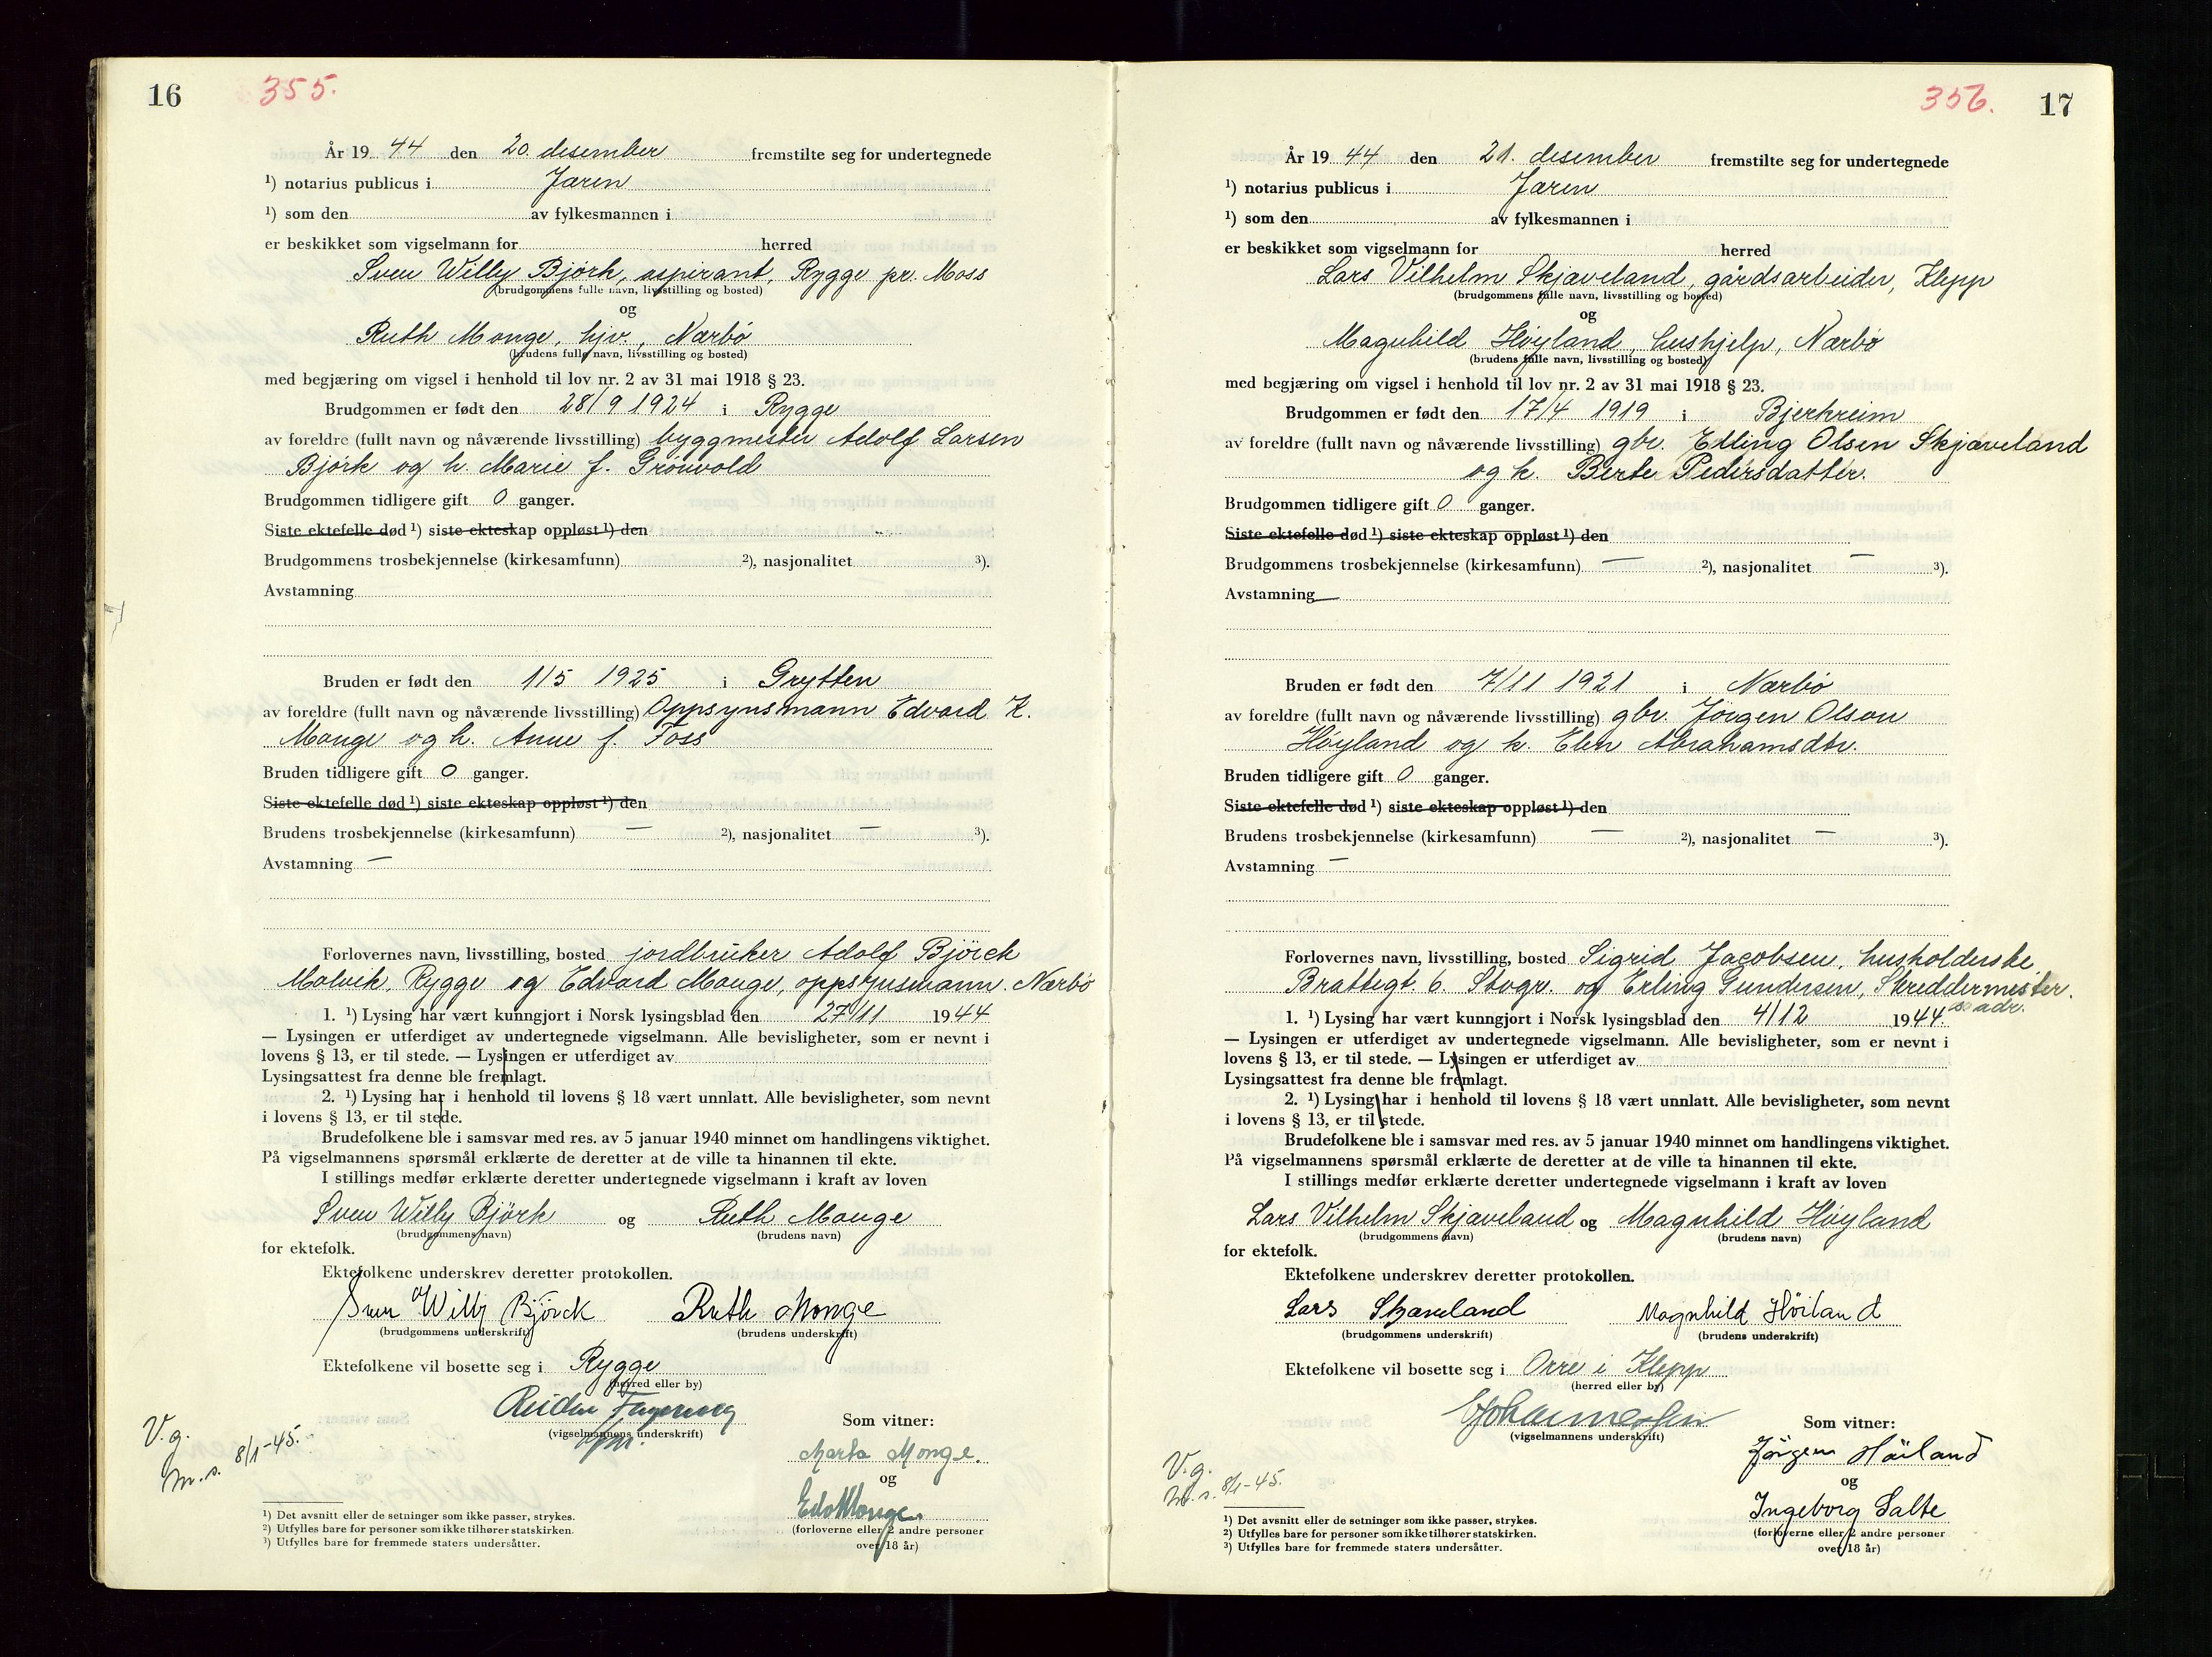 16 355.
År 19 44 den 20. desember fremstilte seg for undertegnede
¹) notarius publicus i Jæren
¹) som den av fylkesmannen i
er beskikket som vigselmann for herred
Sven Willy Björk, aspirant, Rygge pr. Moss
(brudgommens fulle navn, livsstilling og bosted)
og
Ruth Monge, hjv., Nærbö
(brudens fulle navn, livsstilling og bosted)
med begjæring om vigsel i henhold til lov nr. 2 av 31 mai 1918 § 23.
Brudgommen er født den 28/9 1924 i Rygge
av foreldre (fullt navn og nåværende livsstilling) byggmester Adolf Larsen
Björk og h. Marie f. Grönvold
Brudgommen tidligere gift 0 ganger.
Siste ektefelle død ¹) siste ekteskap oppløst ¹) den
Brudgommens trosbekjennelse (kirkesamfunn) ²), nasjonalitet ³).
Avstamning
Bruden er født den 1/5 1925 i Grytten
av foreldre (fullt navn og nåværende livsstilling) Oppsynsmann Edvard K.
Monge og h. Anne f. Foss
Bruden tidligere gift 0 ganger.
Siste ektefelle død ¹) siste ekteskap oppløst ¹) den
Brudens trosbekjennelse (kirkesamfunn) — ²), nasjonalitet — ³).
Avstamning —
Forlovernes navn, livsstilling, bosted jordbruker Adolf Björck
Malvik, Rygge og Edvard Monge, oppsynsmann. Nærbö
1. ¹) Lysing har vært kunngjort i Norsk lysingsblad den 27/11 1944
— Lysingen er utferdiget av undertegnede vigselmann. Alle bevisligheter, som er nevnt i
lovens § 13, er til stede. — Lysingen er utferdiget av
Lysingsattest fra denne ble fremlagt.
2. ¹) Lysing har i henhold til lovens § 18 vært unnlatt. Alle bevisligheter, som nevnt
i lovens § 13, er til stede.
Brudefolkene ble i samsvar med res. av 5 januar 1940 minnet om handlingens viktighet.
På vigselmannens spørsmål erklærte de deretter at de ville ta hinannen til ekte.
I stillings medfør erklærte deretter undertegnede vigselmann i kraft av loven
Sven Willy Björk og Ruth Monge
(brudgommens navn) (brudens navn)
for ektefolk.
Ektefolkene underskrev deretter protokollen.
Sven Willy Björck Ruth Monge
(brudgommens underskrift) (brudens underskrift)
Ektefolkene vil bosette seg i Rygge
(herred eller by)
Reidar
(vigselmannens underskrift)
Som vitner:
Marta Monge.
og
Edv Monge
(forloverne eller 2 andre personer
over 18 år)
V.g.
m.s. 8/1-45.
¹) Det avsnitt eller de setninger som ikke passer, strykes.
²) Utfylles bare for personer som ikke tilhører statskirken.
³) Utfylles bare for fremmede staters undersåtter.
356. 17
År 19 44 den 21. desember fremstilte seg for undertegnede
¹) notarius publicus i Jæren
¹) som den av fylkesmannen i
er beskikket som vigselmann for herred
Lars Vilhelm Skjæveland, gårdsarbeider, Klepp
(brudgommens fulle navn, livsstilling og bosted)
og
Magnhild Høyland, hushjelp, Nærbö
(brudens fulle navn, livsstilling og bosted)
med begjæring om vigsel i henhold til lov nr. 2 av 31 mai 1918 § 23.
Brudgommen er født den 17/4 1919 i Bjerkreim
av foreldre (fullt navn og nåværende livsstilling) gbr. Elling Olsen Skjæveland
og h. Berte Pedersdatter.
Brudgommen tidligere gift 0 ganger.
Siste ektefelle død ¹) siste ekteskap oppløst ¹) den
Brudgommens trosbekjennelse (kirkesamfunn) — ²), nasjonalitet — ³).
Avstamning —
Bruden er født den 7/11 1921 i Nærbö
av foreldre (fullt navn og nåværende livsstilling) gbr. Jörgen Olson
Høyland og h. Elen Abrahamsdtr.
Bruden tidligere gift 0 ganger.
Siste ektefelle død ¹) siste ekteskap oppløst ¹) den
Brudens trosbekjennelse (kirkesamfunn) — ²), nasjonalitet — ³).
Avstamning —
Forlovernes navn, livsstilling, bosted Sigrid Jacobsen, husholderske
Brattegt. 6. Stvgr. og Erling Gundersen, Skreddermester.
s. adr.
1. ¹) Lysing har vært kunngjort i Norsk lysingsblad den 4/12 1944.
— Lysingen er utferdiget av undertegnede vigselmann. Alle bevisligheter, som er nevnt i
lovens § 13, er til stede. — Lysingen er utferdiget av
Lysingsattest fra denne ble fremlagt.
2. ¹) Lysing har i henhold til lovens § 18 vært unnlatt. Alle bevisligheter, som nevnt
i lovens § 13, er til stede.
Brudefolkene ble i samsvar med res. av 5 januar 1940 minnet om handlingens viktighet.
På vigselmannens spørsmål erklærte de deretter at de ville ta hinannen til ekte.
I stillings medfør erklærte deretter undertegnede vigselmann i kraft av loven
Lars Vilhelm Skjæveland og Magnhild Høyland
(brudgommens navn) (brudens navn)
for ektefolk.
Ektefolkene underskrev deretter protokollen.
Lars Skjæveland Magnhild Höiland
(brudgommens underskrift) (brudens underskrift)
Ektefolkene vil bosette seg i Orre i Klepp
(herred eller by)
(vigselmannens underskrift)
Som vitner:
Jörgen Höiland
og
Ingeborg Salte
(forloverne eller 2 andre personer
over 18 år)
V.g.
m.s. 8/1-45.
¹) Det avsnitt eller de setninger som ikke passer, strykes.
²) Utfylles bare for personer som ikke tilhører statskirken.
³) Utfylles bare for fremmede staters undersåtter.